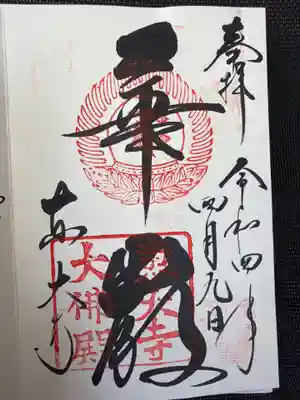 奉拝
令和四年
四月九日
華
嚴
東大寺
東大寺
大佛殿